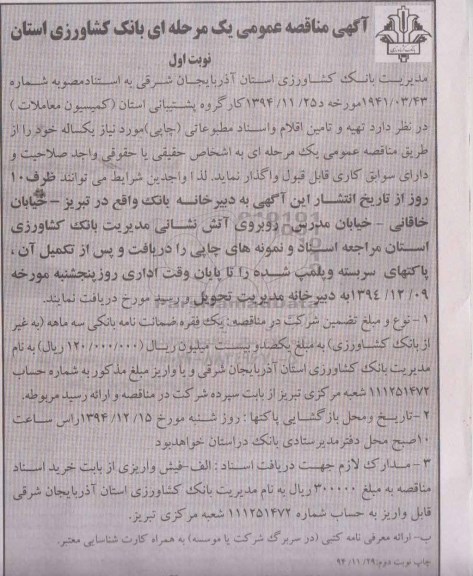 آگهی مناقصه عمومی یک مرحله ای بانک کشاورزی استان
نوبت اول
مدیریت بانک کشاورزی استان آذربایجان شرقی به استناد مصوبه شماره
۱۹۴۱/۰۳/۴۳ مورخه ۲۵د/۱۳۹۴/۱۱ کارگروه پشتیبانی استان (کمیسیون معاملات )
در نظر دارد تهیه و تامین اقلام واسناد مطبوعاتی (چاپی)مورد نیاز یکساله خود را از
طریق مناقصه عمومی یک مرحله ای به اشخاص حقیقی یا حقوقی واجد صلاحیت و
دارای سوابق کاری قابل قبول واگذار نماید. لذا واجدین شرایط می توانند ظرف۱۰
روز از تاریخ انتشار این آگهی به دبیرخانه بانک واقع در تبریز – خیابان
خاقانی – خیابان مدرس – روبروی آتش نشانی مدیریت بانک کشاورزی
استان مراجعه اسناد و نمونه های چاپی را دریافت و پس از تکمیل آن ،
پاکتهای سربسته وپلمپ شده را تا پایان وقت اداری روزپنجشنبه مورخه
۱۳۹۴/۱۲/۰۹ به دبیرخانه مدیریت تحویل و رسید مورخ دریافت نمایند.
۱- نوع و مبلغ تضمین شرکت در مناقصه: یک فقره ضمانت نامه بانکی سه ماهه (به غیر
از بانک کشاورزی) به مبلغ یکصدو بیست میلیون ریال (۱۲۰/۰۰۰/۰۰۰ ریال) به نام
مدیریت بانک کشاورزی استان آذربایجان شرقی و یا واریز مبلغ مذکور به شماره حساب
۱۱۱۲۵۱۴۷۲ شعبه مرکزی تبریز از بابت سپرده شرکت در مناقصه و ارائه رسید مربوطه.
۲- تاریخ و محل بازگشایی پاکتها : روز شنبه مورخ ۱۳۹۴/۱۲/۱۵ راس ساعت
۱۰صبح محل دفترمدیرستادی بانک دراستان خواهدبود
۳- مدارک لازم جهت دریافت اسناد : الف-فیش واریزی از بابت خرید اسناد
مناقصه به مبلغ ۳۰۰۰۰۰ ریال به نام مدیریت بانک کشاورزی استان آذربایجان شرقی
قابل واریز به حساب شماره ۱۱۱۲۵۱۴۷۲ شعبه مرکزی تبریز.
ب- ارائه معرفی نامه کتبی (در سربرگ شرکت یا موسسه) به همراه کارت شناسایی معتبر.
چاپ نوبت دوم: ۹۴/۱۱/۲۹